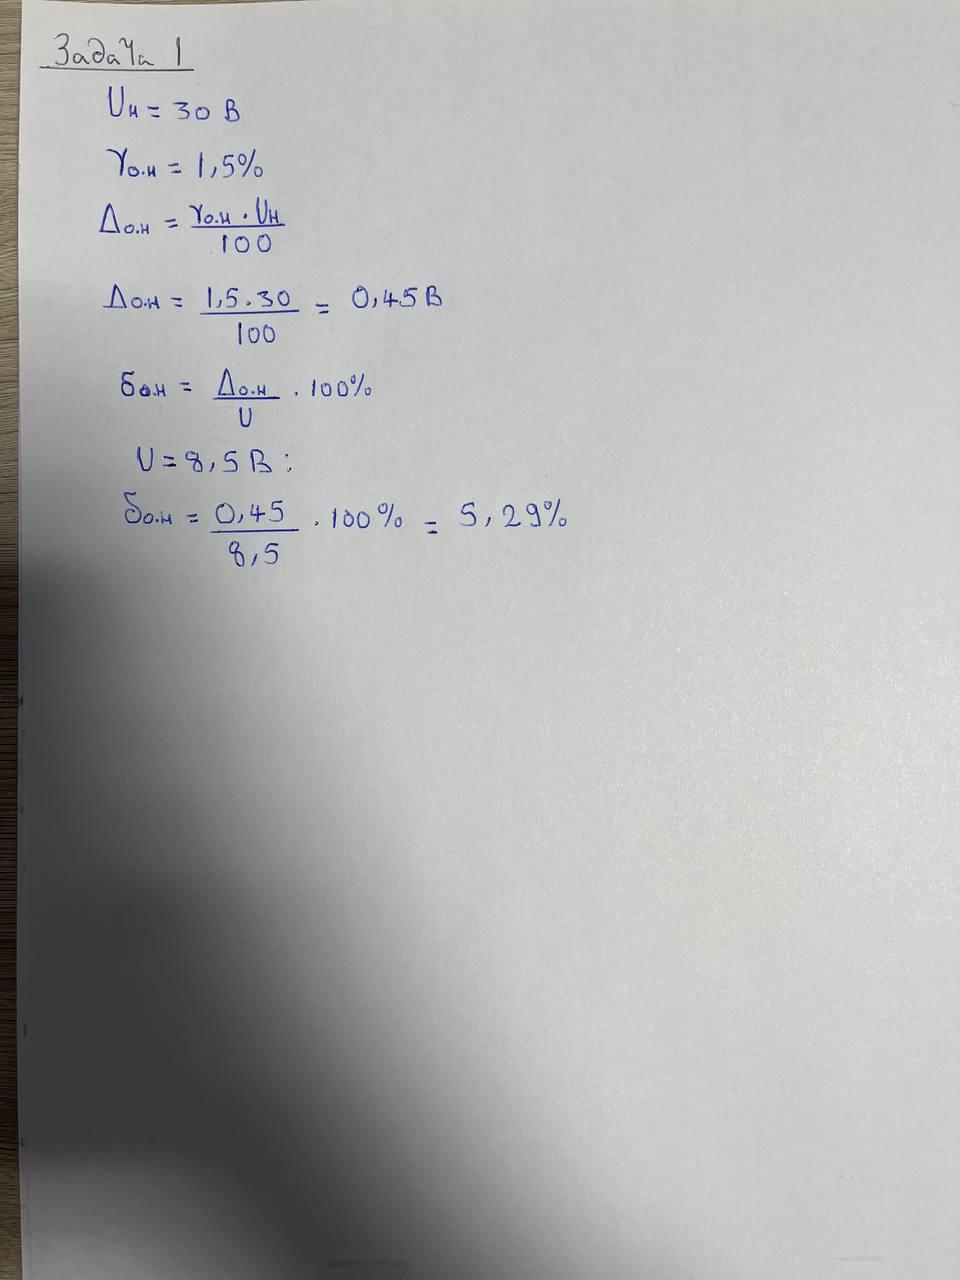 Задача 1
Uн = 30 В
γо.н = 1,5%
Δо.н = γо.н · Uн / 100
Δо.н = 1,5 · 30 / 100 = 0,45 В
δо.н = Δо.н / U · 100%
U = 8,5 В :
δо.н = 0,45 / 8,5 · 100% = 5,29%